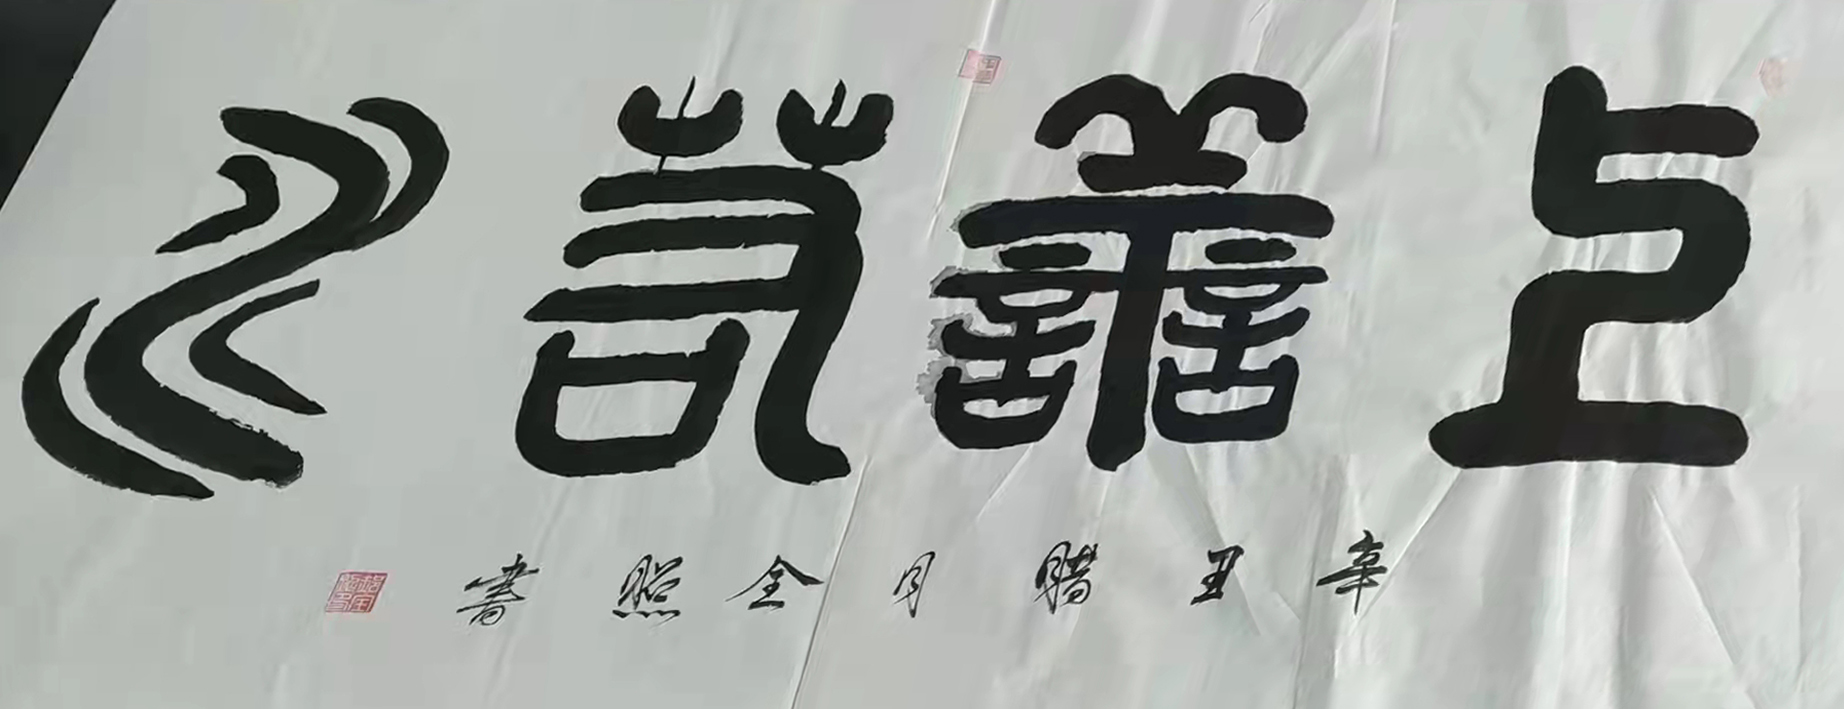 上善若水
辛丑腊月全照書